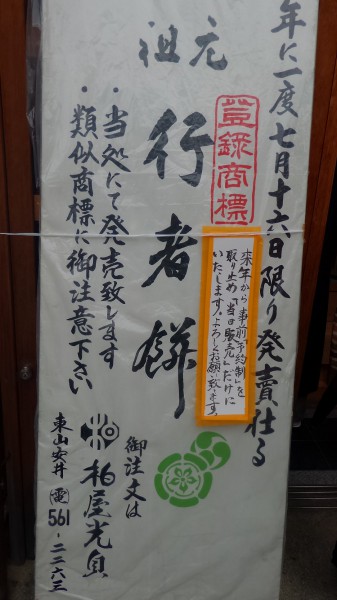 年に一度七月十六日限り発賣仕る
登録商標
来年から事前予約制を
取り止め「当日販売」だけに
いたします。よろしくお願い致します。
元祖
行者餅
・当処にて発売致します
・類似商標に御注意下さい
御注文は
柏屋光貞
東山安井
電
561-二二六三